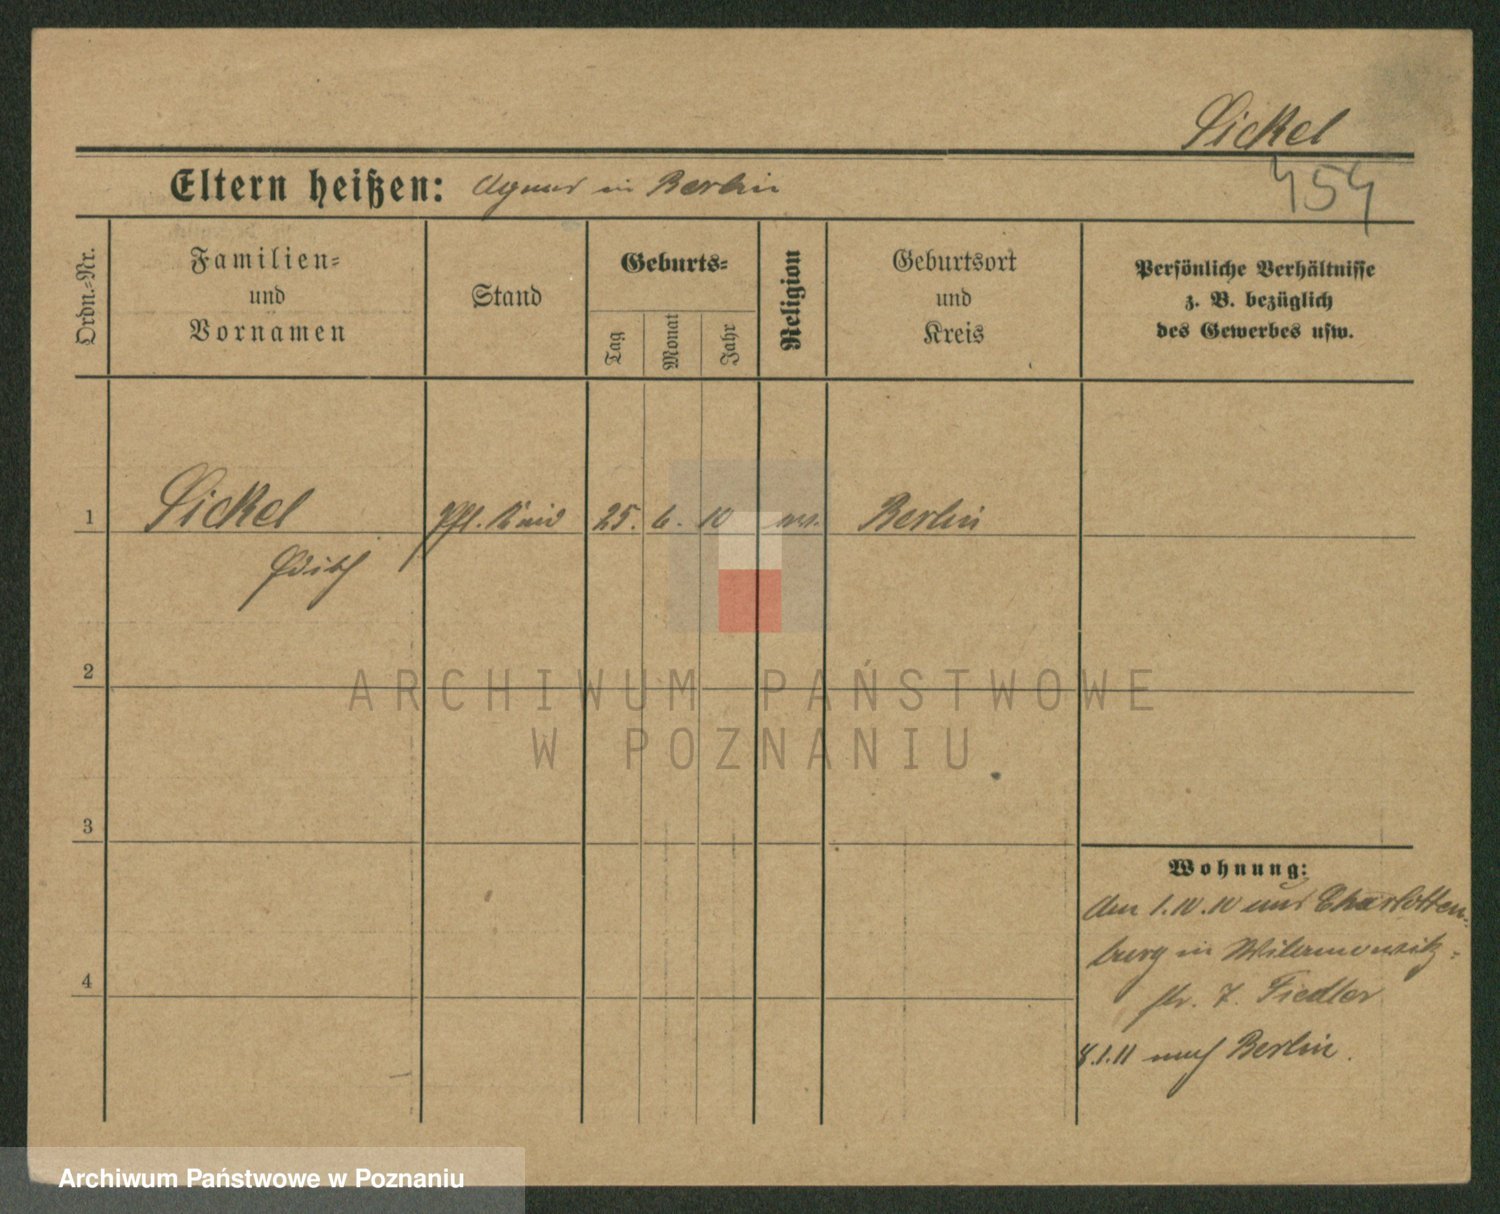 Sickel
454
Eltern heißen: Agnes in Berlin
Ordn.-Nr.
Familien-
und
Vornamen
Stand
Geburts-
Tag
Monat
Jahr
Religion
Geburtsort
und
Kreis
Persönliche Verhältnisse
z. B. bezüglich
des Gewerbes usw.
1
Sickel
Pfl. Kind
25. 6. 10
ev.
Berlin
Edith
2
ARCHIWUM PAŃSTWOWE
W POZNANIU
3
Wohnung:
Am 1.10.10 aus Charlotten-
burg in Wilamowitz-
str. 7. Fiedler
4
8.1.11 nach Berlin.
Archiwum Państwowe w Poznaniu